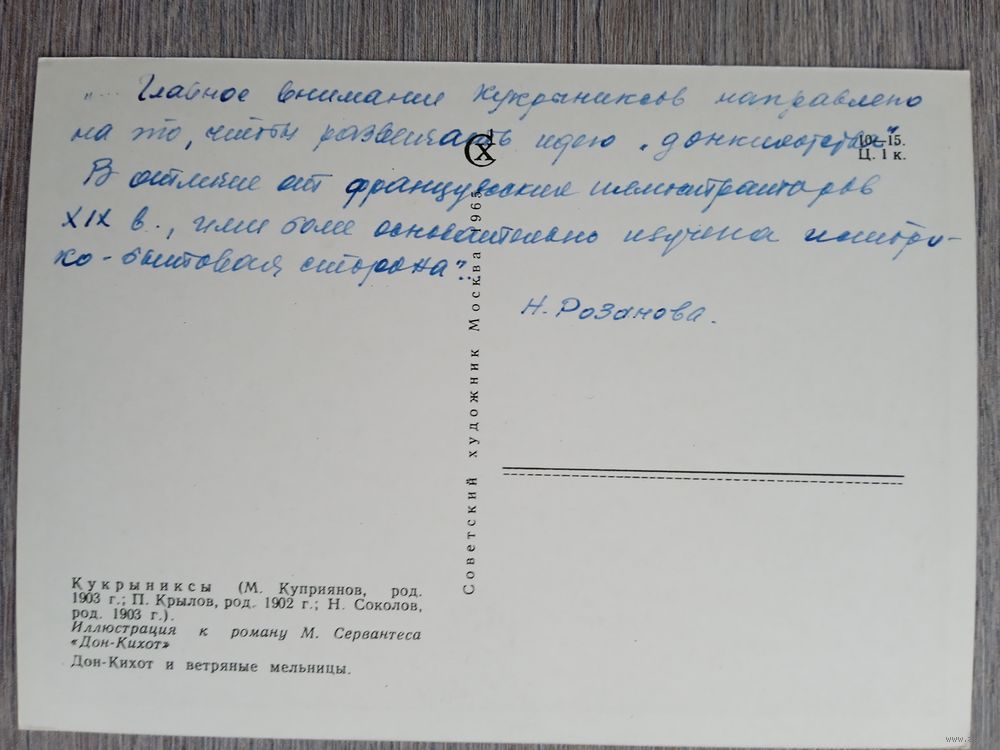 „... Главное внимание Кукрыниксов направлено
на то, чтобы развенчать идею „донкихотства“
В отличие от французских иллюстраторов
XIX в., ими более основательно изучена истори-
ко-бытовая сторона“.
Н. Розанова.
10—15.
Ц. 1 к.
Советский художник Москва 1965
Кукрыниксы (М. Куприянов, род.
1903 г.; П. Крылов, род. 1902 г.; Н. Соколов,
род. 1903 г.).
Иллюстрация к роману М. Сервантеса
«Дон-Кихот»
Дон-Кихот и ветряные мельницы.